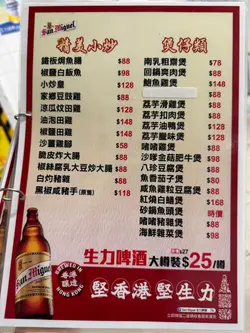 San Miguel
精美小炒
鐵板焗魚腸 $88
椒鹽白飯魚 $98
小炒皇 $128
家鄉豆豉雞 $88
涼瓜炆田雞 $128
油泡田雞 $148
椒鹽田雞 $148
沙薑雞腳
脆皮炸大腸 $88
椒絲腐乳大豆炒大腸 $88
白灼豬雜 $88
黑椒咸豬手 $118
煲仔類
南乳粗齋煲 $78
回鍋爽肉煲 $88
鹹魚雞煲
荔芋滑雞煲 $88
荔芋扣肉煲 $88
荔芋油鴨煲 $128
荔芋田雞煲 $128
啫啫雞煲 $88
沙嗲金菇肥牛煲 $98
八珍豆腐煲 $88
魚香茄子煲 $88
咸魚雞粒豆腐煲 $88
紅燒白鱔煲 $168
砂鍋魚頭煲 時價
啫啫豬雜煲 $98
海鮮雜菜煲 $98
生力啤酒 大樽裝 $25/樽
San Miguel
BREWED IN
香港釀造
HONG KONG
堅香港堅生力